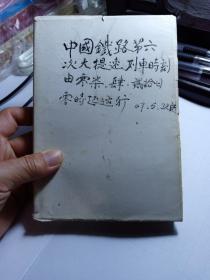 中國鐵路第六
次大提速列車時刻
由零柒、肆、拾日
零時起运行 07.5.